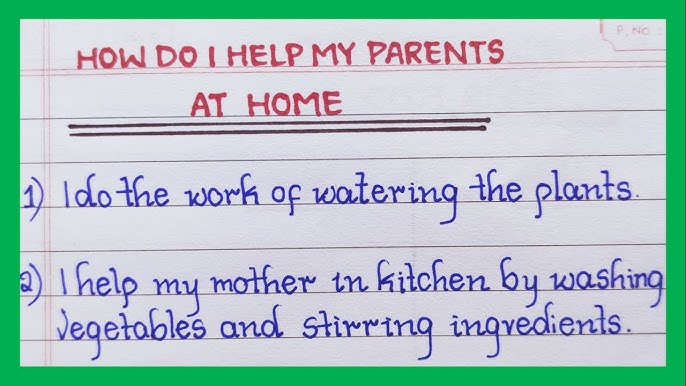 P. NO :
HOW DO I HELP MY PARENTS
AT HOME
1) I do the work of watering the plants.
2) I help my mother in kitchen by washing
vegetables and stirring ingredients.